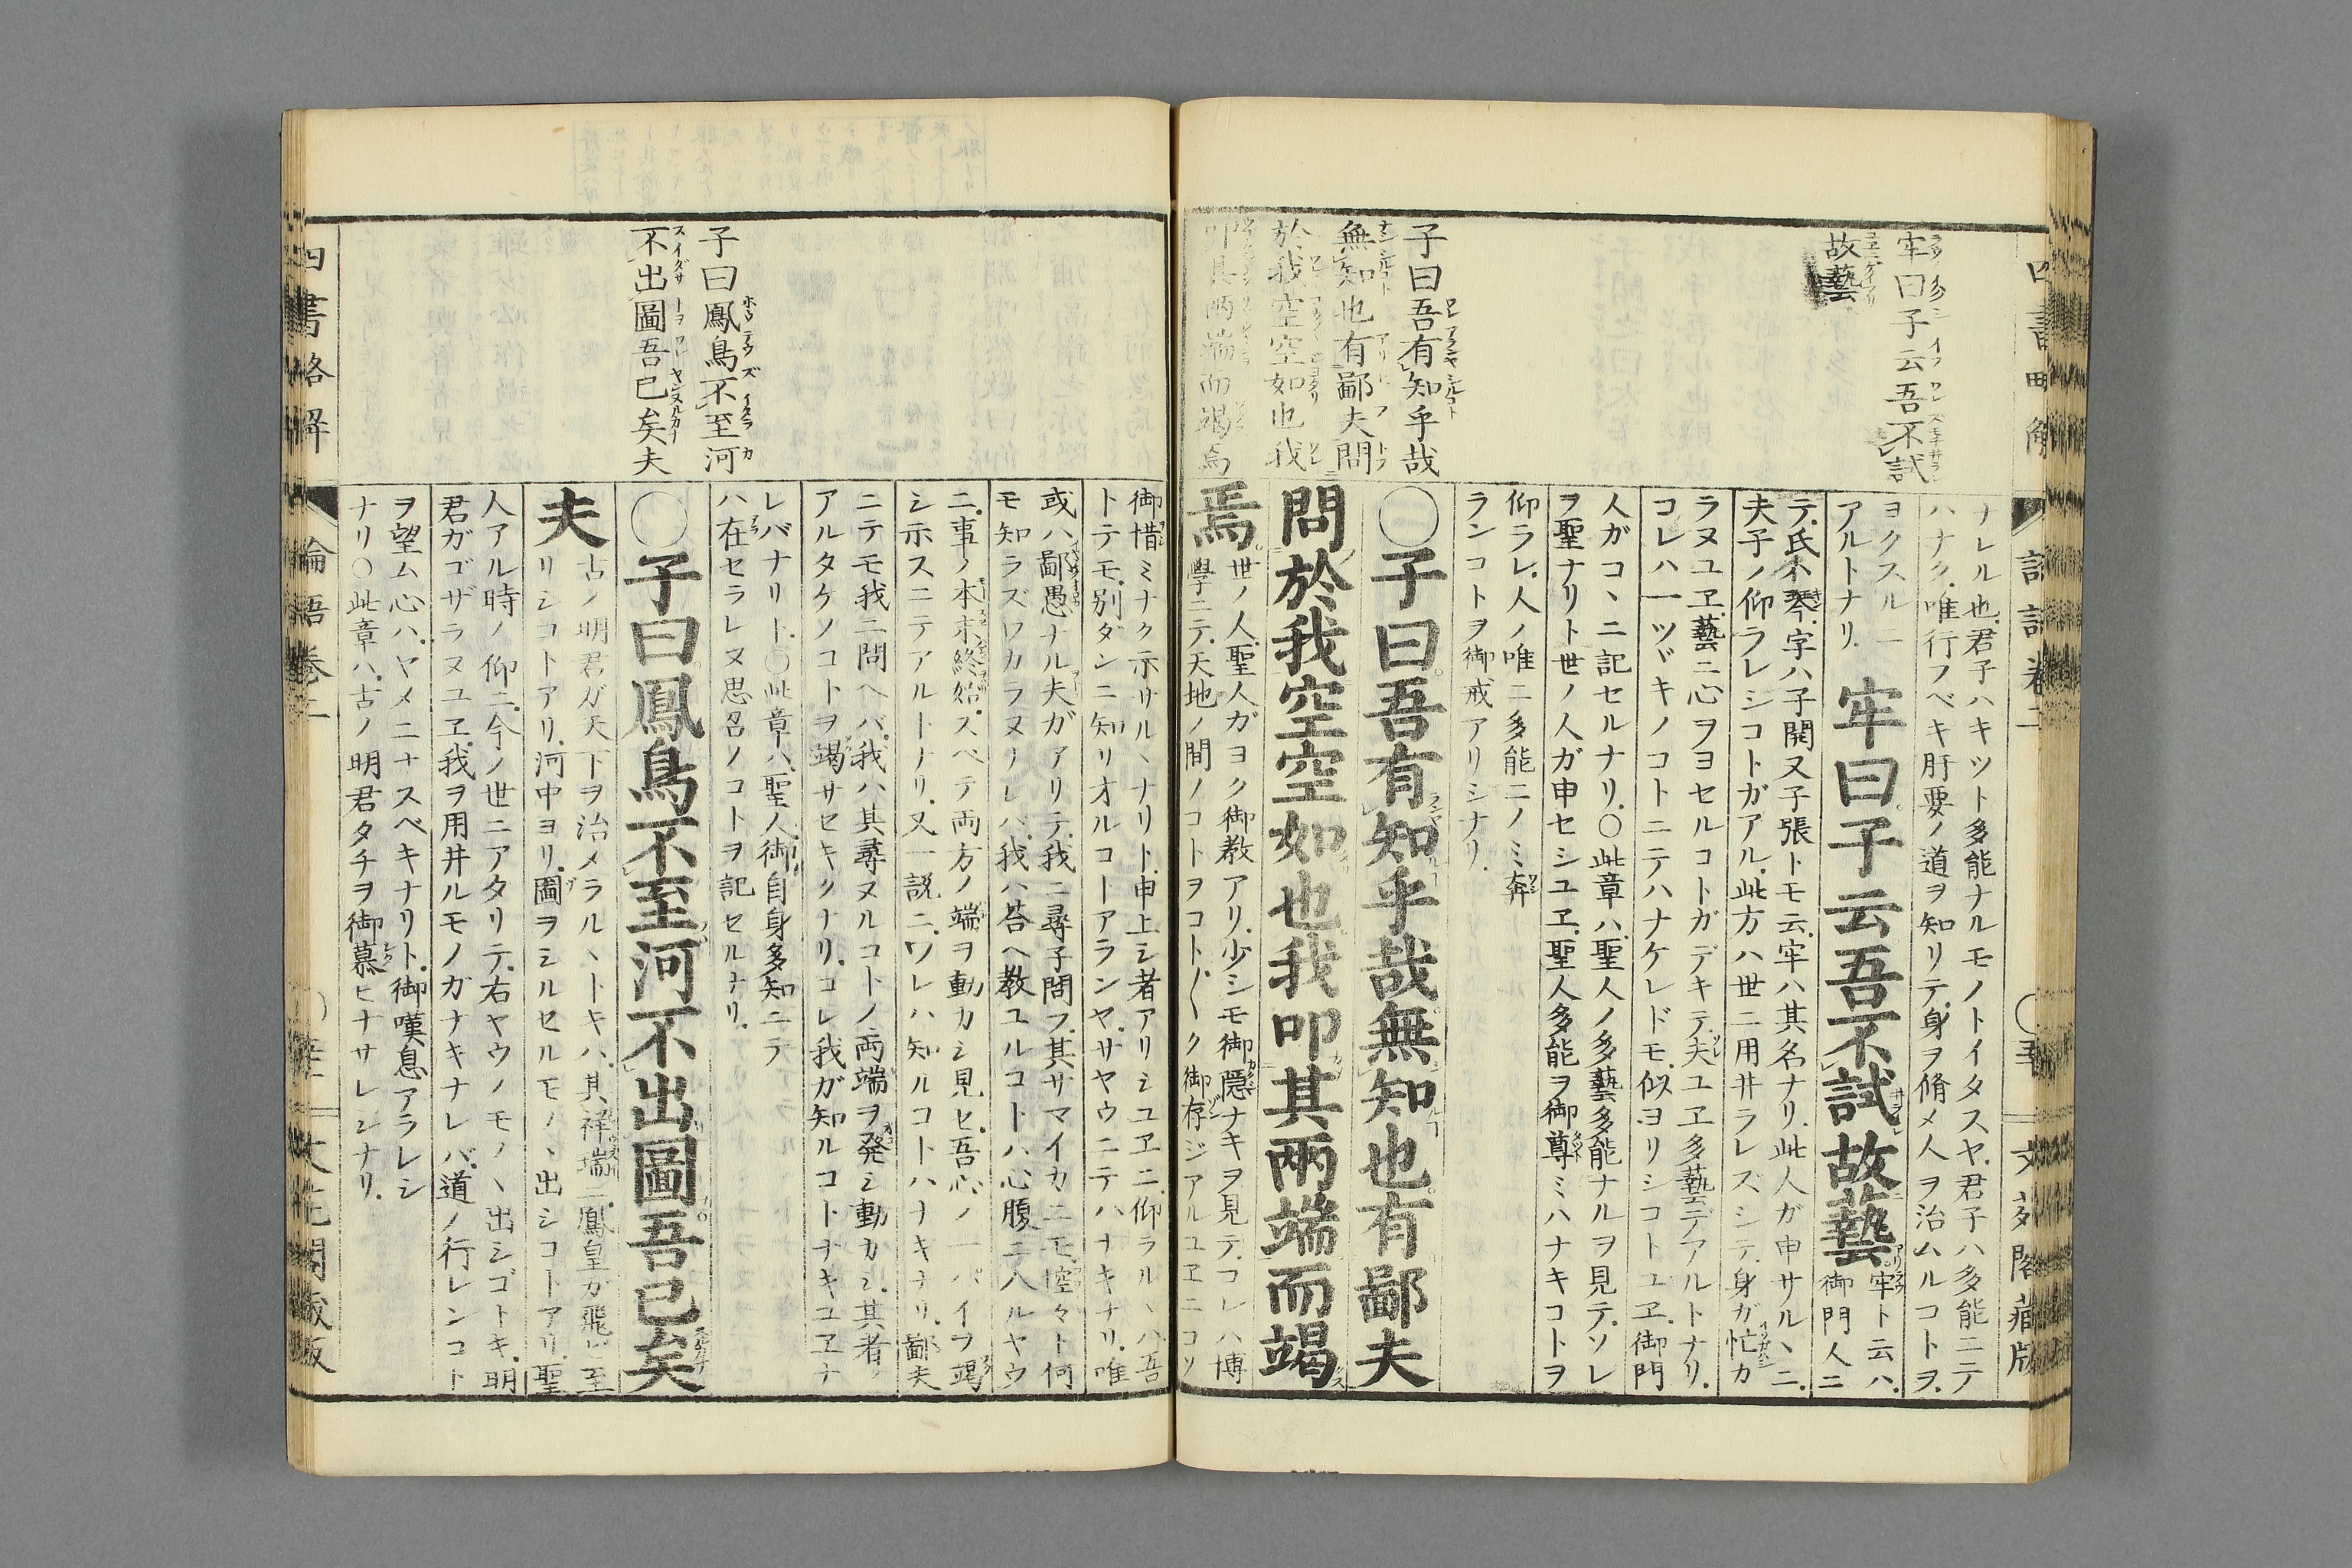 牢曰子云吾不試
故藝
子曰吾有知乎哉
無知也有鄙夫問
於我空空如也我
叩其兩端而竭焉
ナレル也君子ハキツト多能ナルモノトイタスヤ君子ハ多能ニテ
ハナク唯行フベキ肝要ノ道ヲ知リテ身ヲ脩メ人ヲ治ムルコトヲ
ヨクスル
アルトナリ
牢曰子云吾不試故藝
牢ト云ハ
御門人ニ
テ氏ハ琴字ハ子開又子張トモ云牢ハ其名ナリ此人ガ申サルヽニ
夫子ノ仰ラレシコトガアル此方ハ世ニ用井ラレズシテ身ガ忙カ
ラヌユヱ藝ニ心ヲヨセルコトガデキテ夫ユヱ多藝デアルトナリ
コレハ一ツヾキノコトニテハナケレドモ似ヨリシコトユヱ御門
人ガコヽニ記セルナリ〇此章ハ聖人ノ多藝多能ナルヲ見テソレ
ヲ聖ナリト世ノ人ガ申セシユヱ聖人多能ヲ御尊ミハナキコトヲ
仰ラレ人ノ唯ニ多能ニノミ奔
ランコトヲ御戒アリシナリ
〇子曰吾有知乎哉無知也有鄙夫
問於我空空如也我叩其兩端而竭
焉
世ノ人聖人ガヨク御教アリ少シモ御隱ナキヲ見テコレハ博
學ニテ天地ノ間ノコトヲコト〱ク御存ジアルユヱニコソ
御惜ミナク示サルヽナリト申上シ者アリシユヱニ仰ラルヽハ吾
トテモ別ダンニ知リオルコトアランヤサヤウニテハナキナリ唯
或ハ鄙愚ナル夫ガアリテ我ニ尋子問フ其サマイカニモ空々ト何
モ知ラズワカラヌナレバ我ハ答ヘ教ユルコトハ心腹ニ入ルヤウ
ニ事ノ本末終始スベテ両方ノ端ヲ動カシ見ヒ吾心ノ一パイヲ竭
シ示スニテアルトナリ又一説ニワレハ知ルコトハナキナリ鄙夫
ニテモ我ニ問ヘバ我ハ其尋ヌルコトノ両端ヲ発シ動カシ其者ノ
アルタケノコトヲ竭サセキクナリコレ我ガ知ルコトナキユヱナ
レバナリト〇此章ハ聖人御自身多知ニテ
ハ在セラレヌ思召ノコトヲ記セルナリ
子曰鳳鳥不至河
不出圖吾已矣夫
〇子曰鳳鳥不至河不出圖吾已矣
夫
古ノ明君ガ天下ヲ治メラルヽトキハ其祥瑞ニ鳳皇ガ飛ビ至
リシコトアリ河中ヨリ圖ヲシルセルモノヽ出シコトアリ聖
人アル時ノ仰ニ今ノ世ニアタリテ右ヤウノモノヽ出シゴトキ明
君ガゴザラヌユヱ我ヲ用井ルモノガナキナレバ道ノ行レンコト
ヲ望ム心ハヤメニナスベキナリト御嘆息アラレシ
ナリ〇此章ハ古ノ明君タチヲ御慕ヒナサレシナリ
四書略解
論語卷二